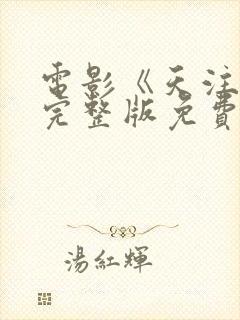 電影《天注
完整版免費
湯紅輝